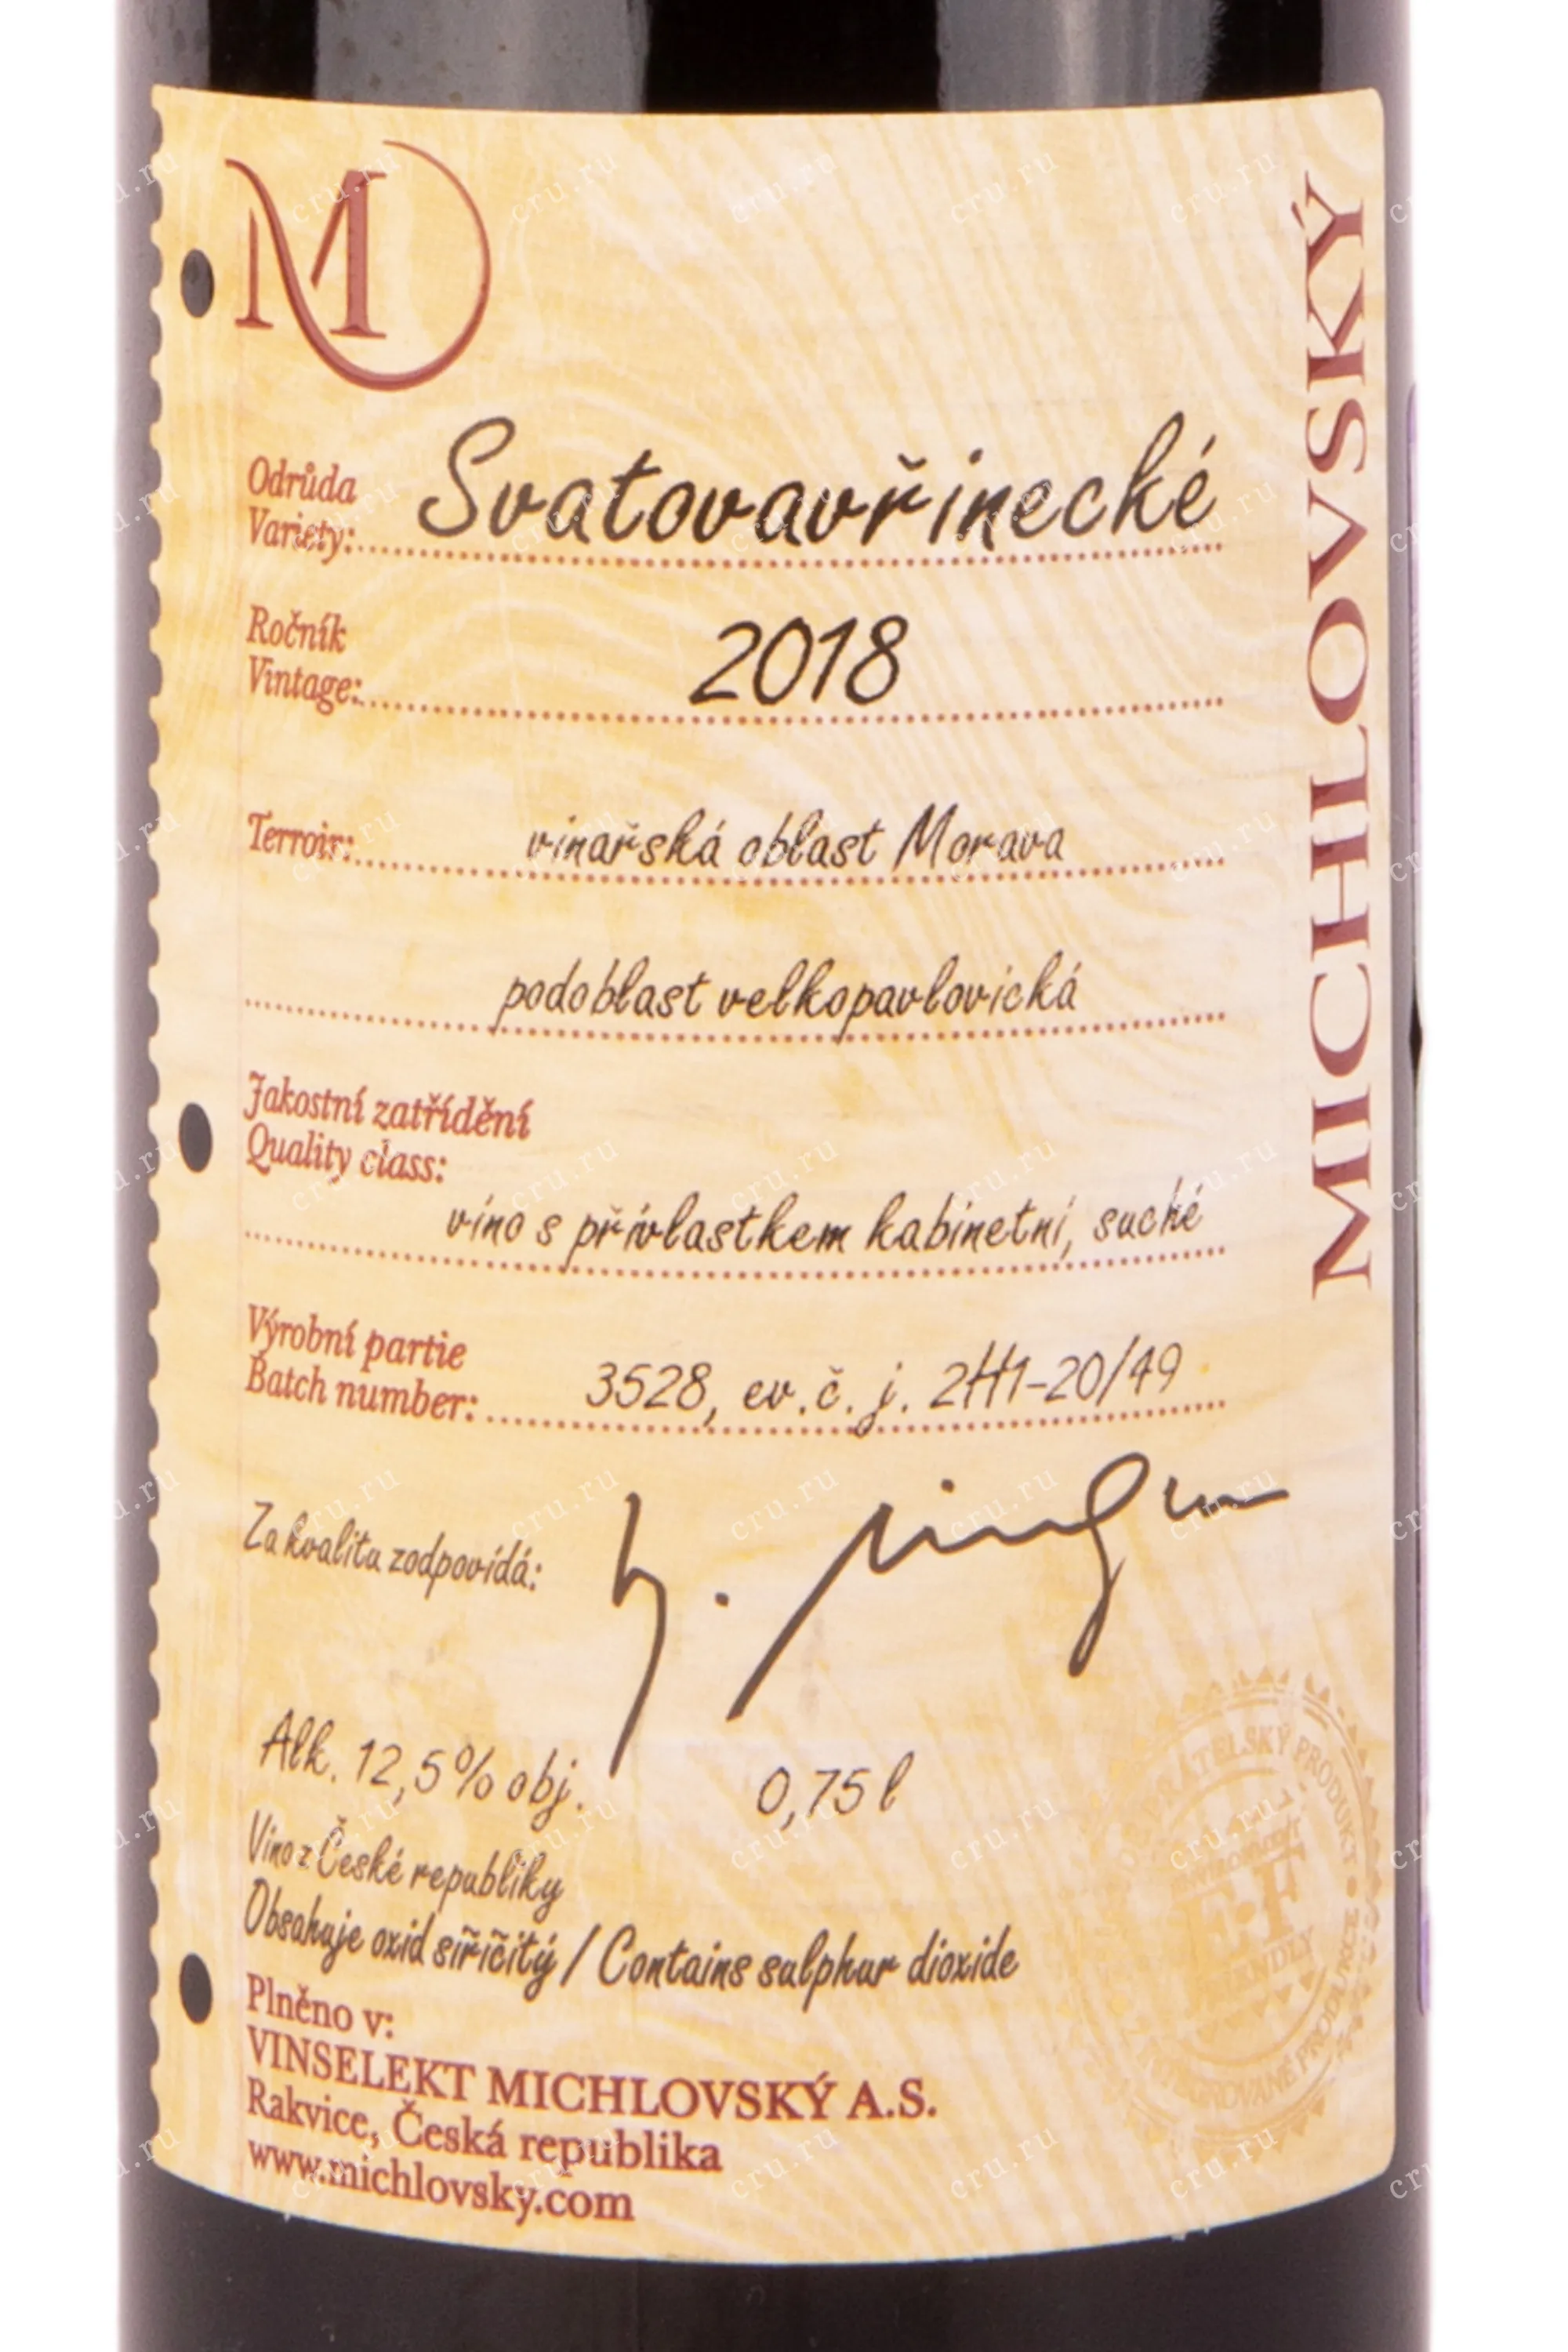 M
MICHLOVSKÝ
Odrůda
Variety:
Svatovavřinecké
Ročník
Vintage:
2018
Terroir:
vinařská oblast Morava
podoblast velkopavlovická
Jakostní zatřídění
Quality class:
víno s přívlastkem kabinetní, suché
Výrobní partie
Batch number:
3528, ev.č. j. 2H1-20/49
Za kvalitu zodpovídá:
Alk. 12,5% obj.
0,75 l
Víno z České republiky
Obsahuje oxid siřičitý / Contains sulphur dioxide
Plněno v:
VINSELEKT MICHLOVSKÝ A.S.
Rakvice, Česká republika
www.michlovsky.com
E·F
INTEGROVANÉ PRODUKCE
cru.ru